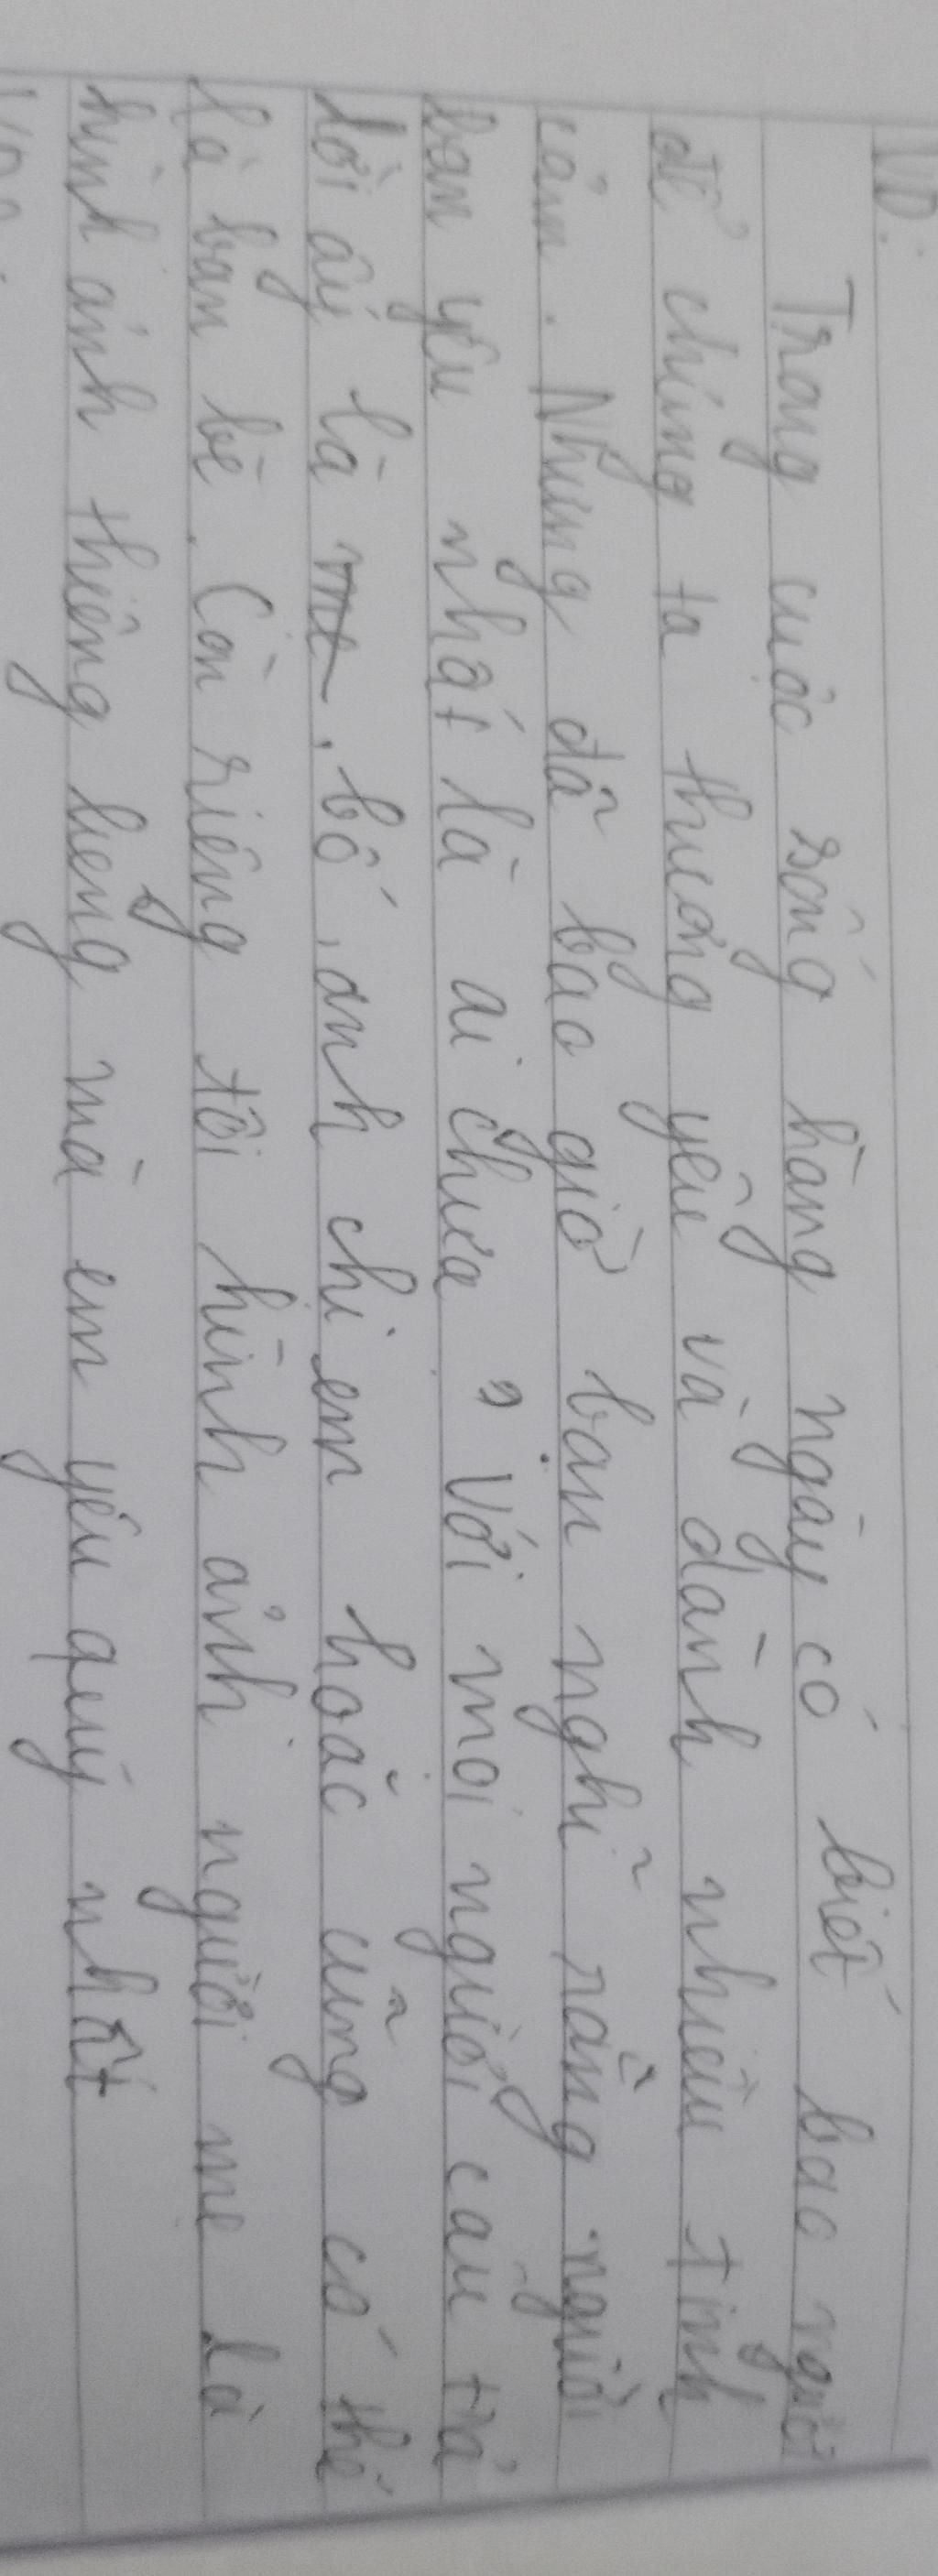 VD:
Trong cuộc sống hằng ngày có biết bao người
để chúng ta thương yêu và dành nhiều tình
cảm. Nhưng đã bao giờ bạn nghĩ rằng người
bạn yêu nhất là ai chưa? Với mỗi người câu trả
lời ấy là me, bố, anh chị em hoặc cũng có thể
là bạn bè. Còn riêng tôi hình ảnh người mẹ là
hình ảnh thiêng liêng mà em yêu quý nhất